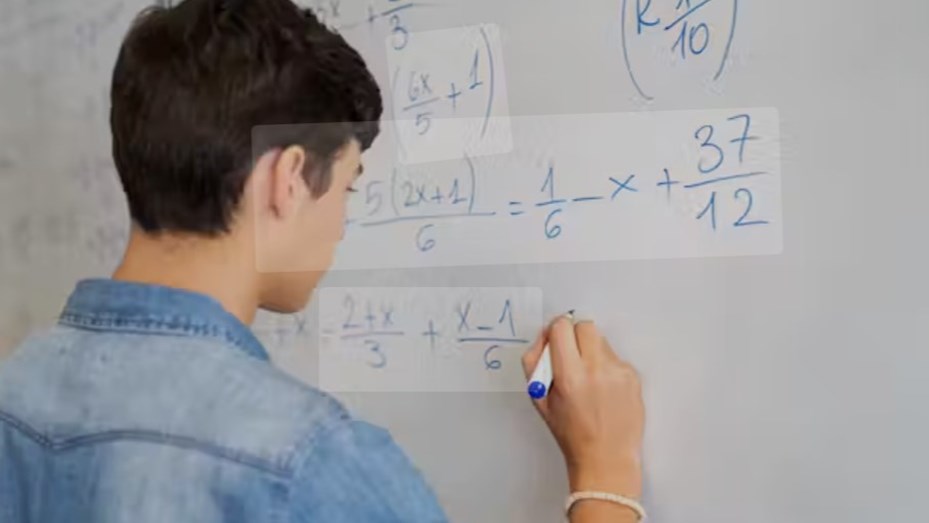 + —/3
(R 1/10)
(6x/5 + 1)
- 5(2x+1)/6 = 1/6 - x + 37/12
+ x - 2+x/3 + x-1/6